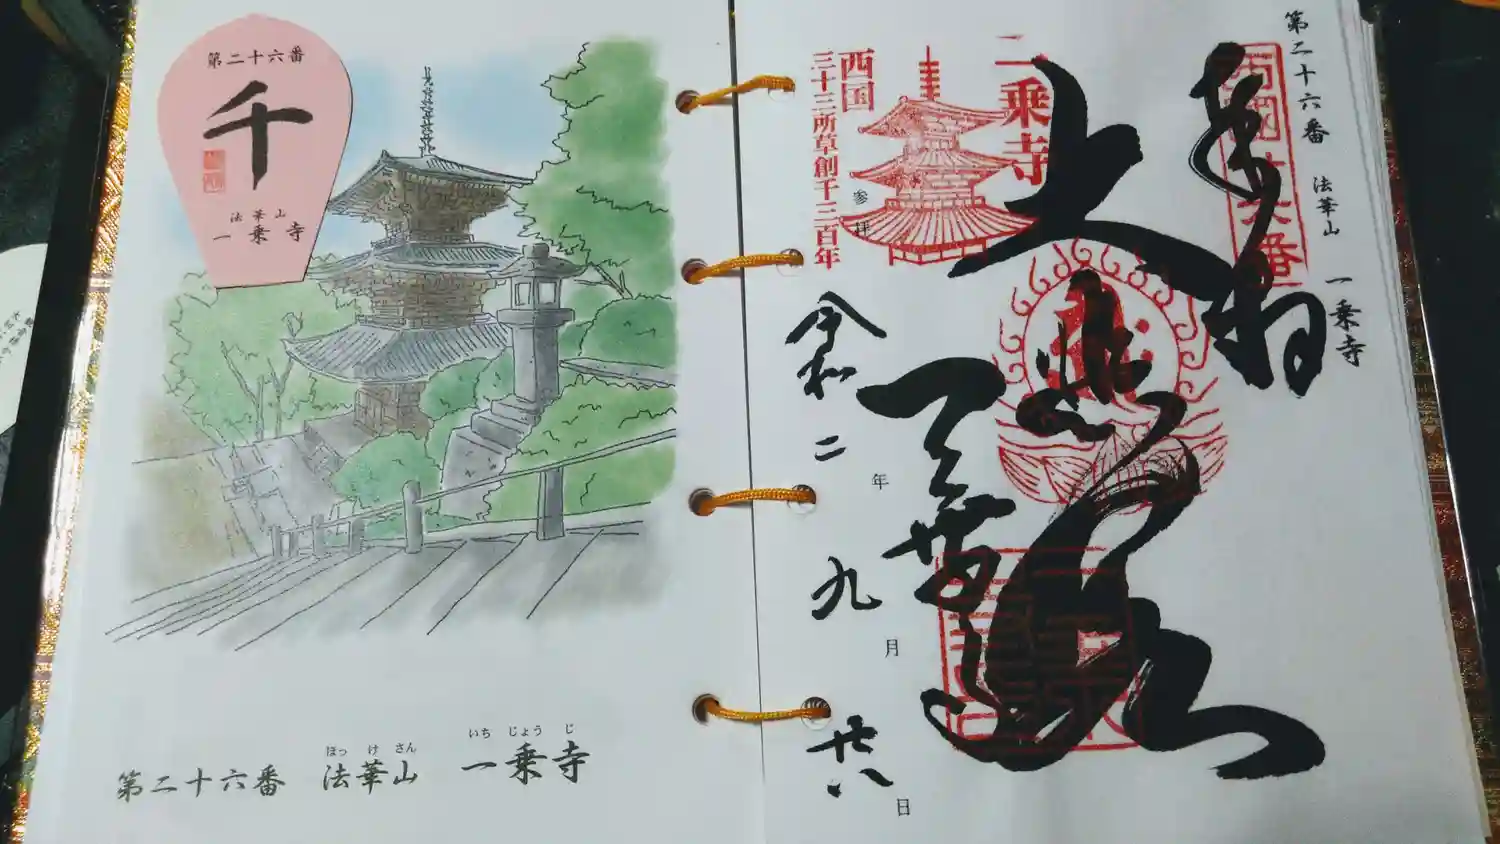 第二十六番
千
法華山
一乗寺
第二十六番 法華山 一乗寺
ほっ け さん
いち じょう じ
第二十六番 法華山 一乗寺
奉拝
大悲殿
一乗寺
西国
三十三所草創千三百年
参拝
令和二年九月廿八日